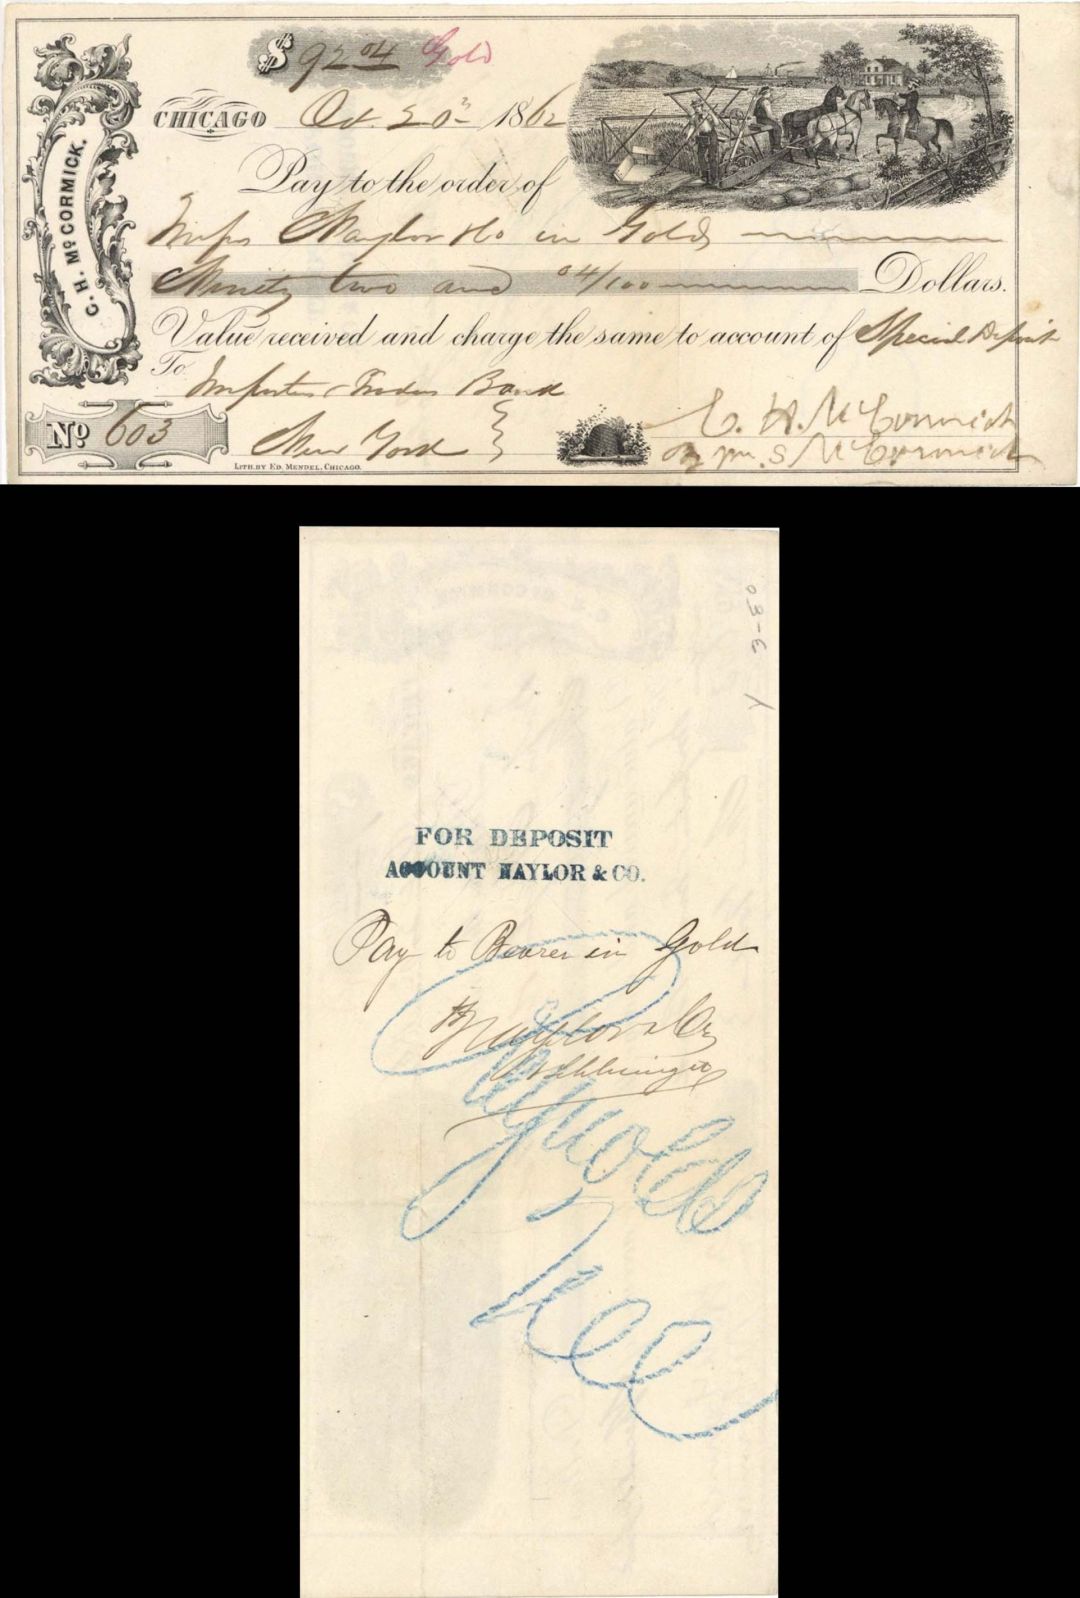 $ 92 04 Gold
CHICAGO Oct. 20 1862
Pay to the order of
Messrs Naylor & Co in Gold
Ninety two and 04/100 Dollars.
Value received and charge the same to account of Special Deposit
To
Importers & Traders Bank
New York
No 603
C. H. McCormick
By Wm. S McCormick
C. H. McCORMICK.
LITH. BY ED. MENDEL, CHICAGO.
3-30
FOR DEPOSIT
ACCOUNT NAYLOR & CO.
Pay to Bearer in Gold
Naylor & Co
Reynolds